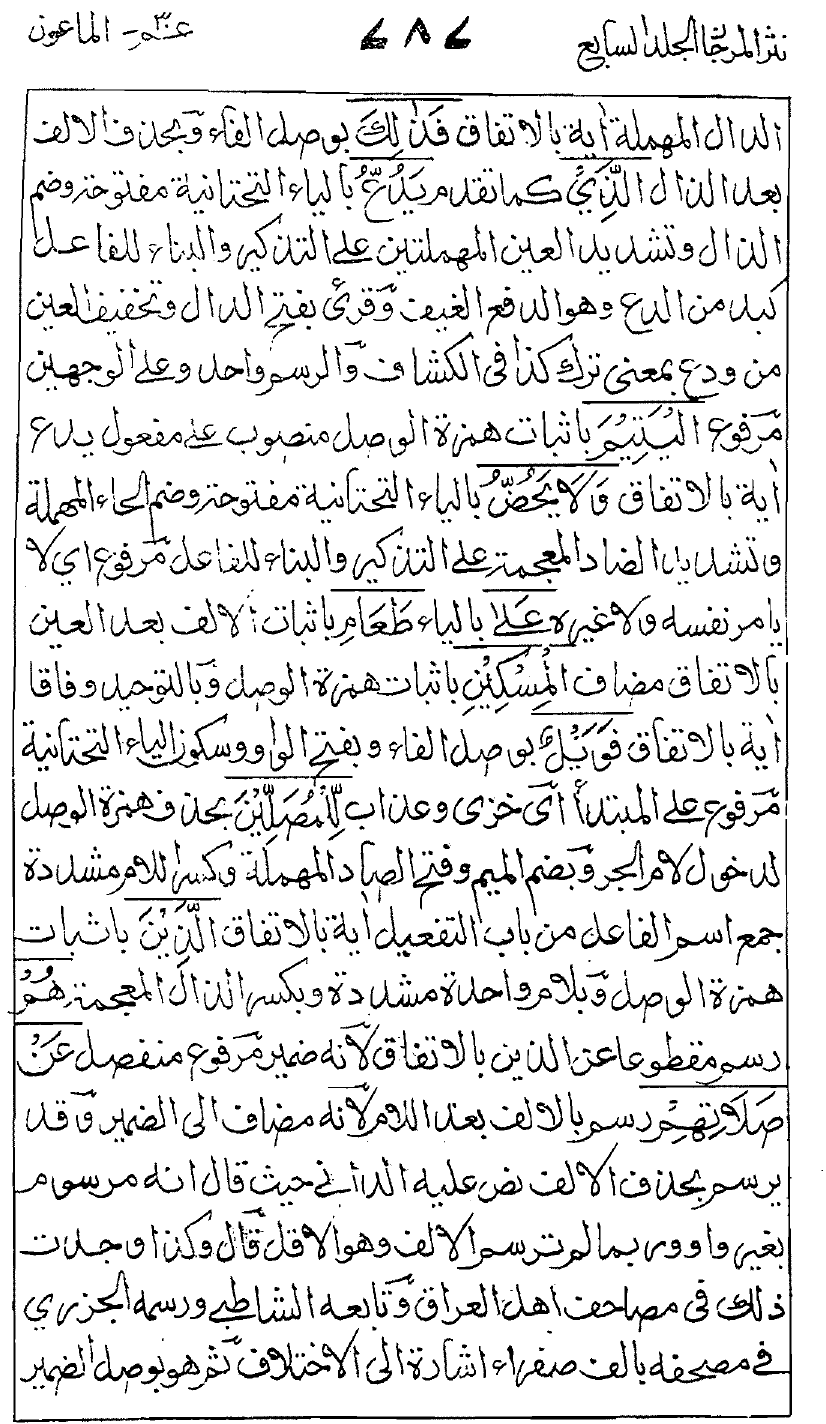 نثر المرجان الجلد السابع ٧٨٧ عم ٣٠ الماعون
الدال المهملة أية بالاتفاق فَذٰلِكَ بوصل الفاء وبحذف الالف
بعد الذال الَّذِيْ كما تقدم يَدُعُّ بالياء التحتانية مفتوحة وضم
الدال وتشديد العين المهملتين على التذكير والبناء للفاعل
كبد من الدع وهو الدفع العنيف وقرئ بفتح الدال وتخفيف العين
من ودع بمعنى ترك كذا فى الكشاف والرسم واحد وعلى الوجهين
مرفوع الْيَتِيْمَ باثبات همزة الوصل منصوب على مفعول يدع
أية بالاتفاق وَلَا يَحُضُّ بالياء التحتانية مفتوحة وضم الحاء المهملة
وتشديد الضاد المعجمة على التذكير والبناء للفاعل مرفوع اي لا
يامر نفسه ولا غيره عَلٰى بالياء طَعَامِ باثبات الالف بعد العين
بالاتفاق مضاف الْمِسْكِيْنِ باثبات همزة الوصل وبالتوحيد وفاقا
أية بالاتفاق فَوَيْلٌ بوصل الفاء وبفتح الواو وسكون الياء التحتانية
مرفوع على المبتدأ أى خزى وعذاب لِّلْمُصَلِّيْنَ بحذف همزة الوصل
لدخول لام الجر وبضم الميم وفتح الصاد المهملة وكسر اللام مشددة
جمع اسم الفاعل من باب التفعيل أية بالاتفاق الَّذِيْنَ باثبات
همزة الوصل وبلام واحدة مشددة وبكسر الذال المعجمة هُمْ
رسم مقطوعا عن الذين بالاتفاق لانه ضمير مرفوع منفصل عَنْ
صَلَاتِهِمْ رسم بالالف بعد اللام لانه مضاف الى الضمير وقد
يرسم بحذف الالف نص عليه الدانى حيث قال انه مرسوم
بغير واو وربما لم ترسم الالف وهو الاقل قال وكذا وجدت
ذلك فى مصاحف اهل العراق وتابعه الشاطبى ورسمه الجزري
فى مصحفه بالف صفراء اشارة الى الاختلاف ثم هو بوصل الضمير